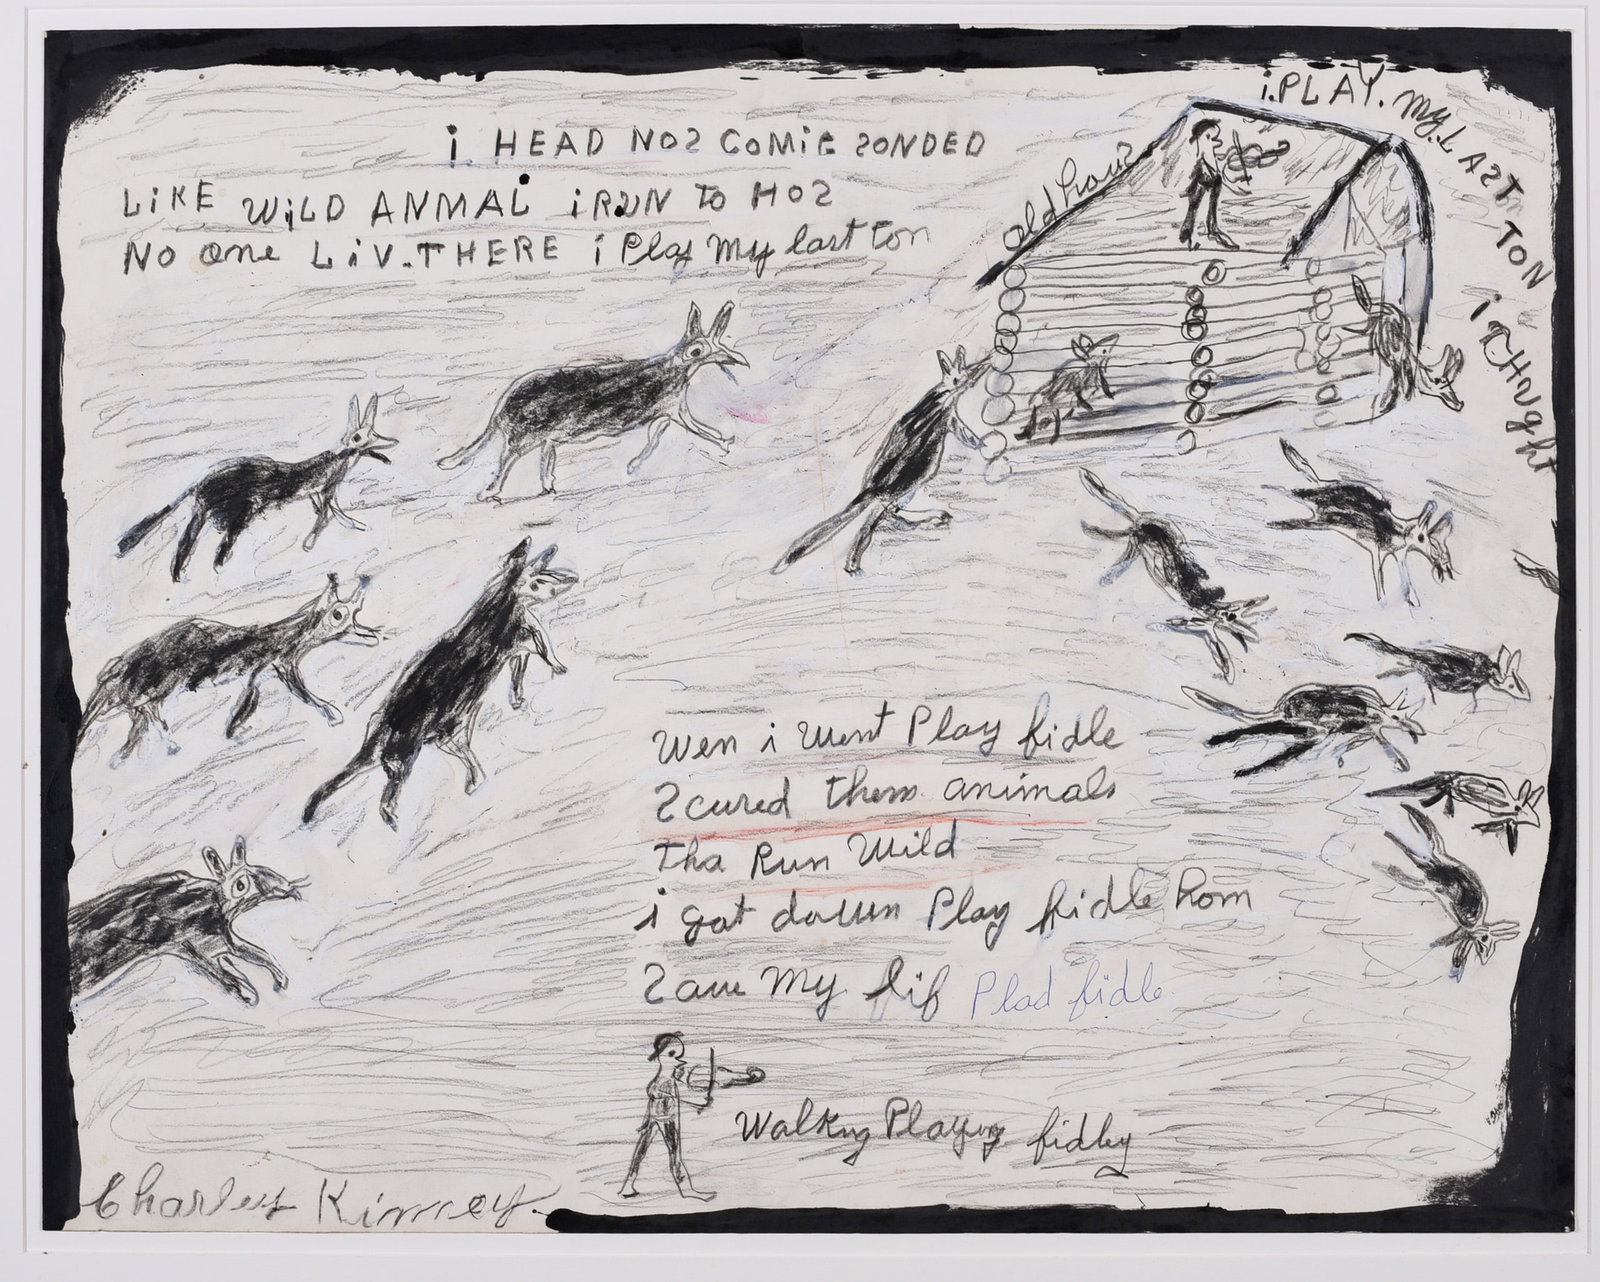 i HEAD NOS COMiE SONDED
LiKE WiLD ANMAL i RUN TO HOS
NO One LiV. THERE i Play My last ton
old hous
i. PLAY. My. LAST TON i THOUGHT
Wen i Went Play fidle
Scured them animals
Tha Run Wild
i got down Play fidle hom
Save My lif Plad fidle
Walkng Playing fidley
Charley Kinney.